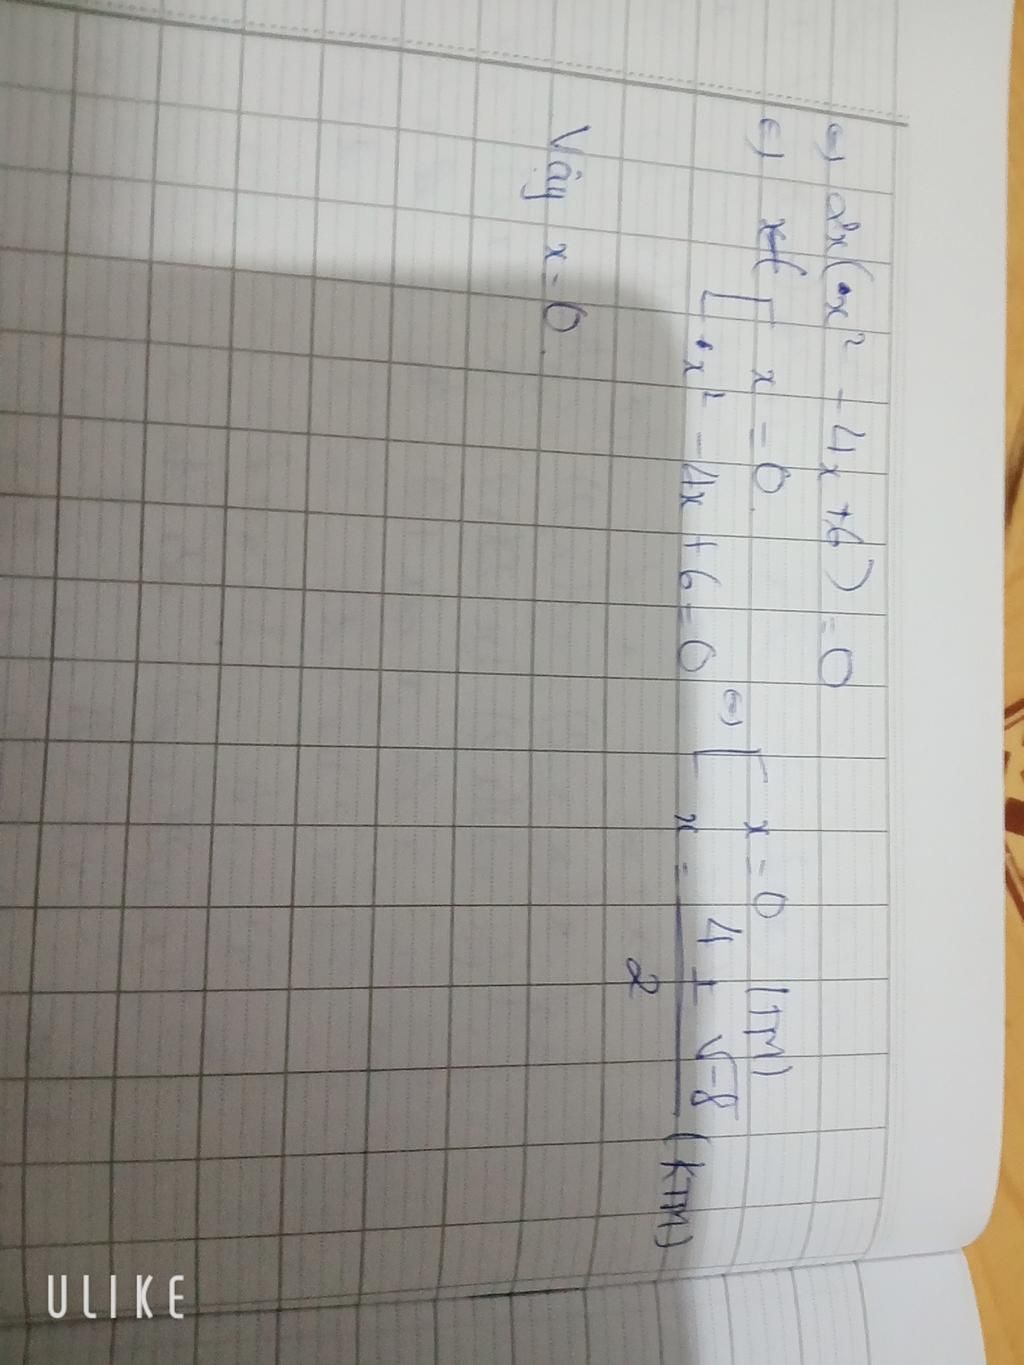 ⇔ 2x(x² - 4x + 6) = 0
⇔ [ x = 0
x² - 4x + 6 = 0 ⇔ [ x = 0 (TM)
x = (4 ± √-8)/2 (KTM)
Vậy x = 0.
ULIKE